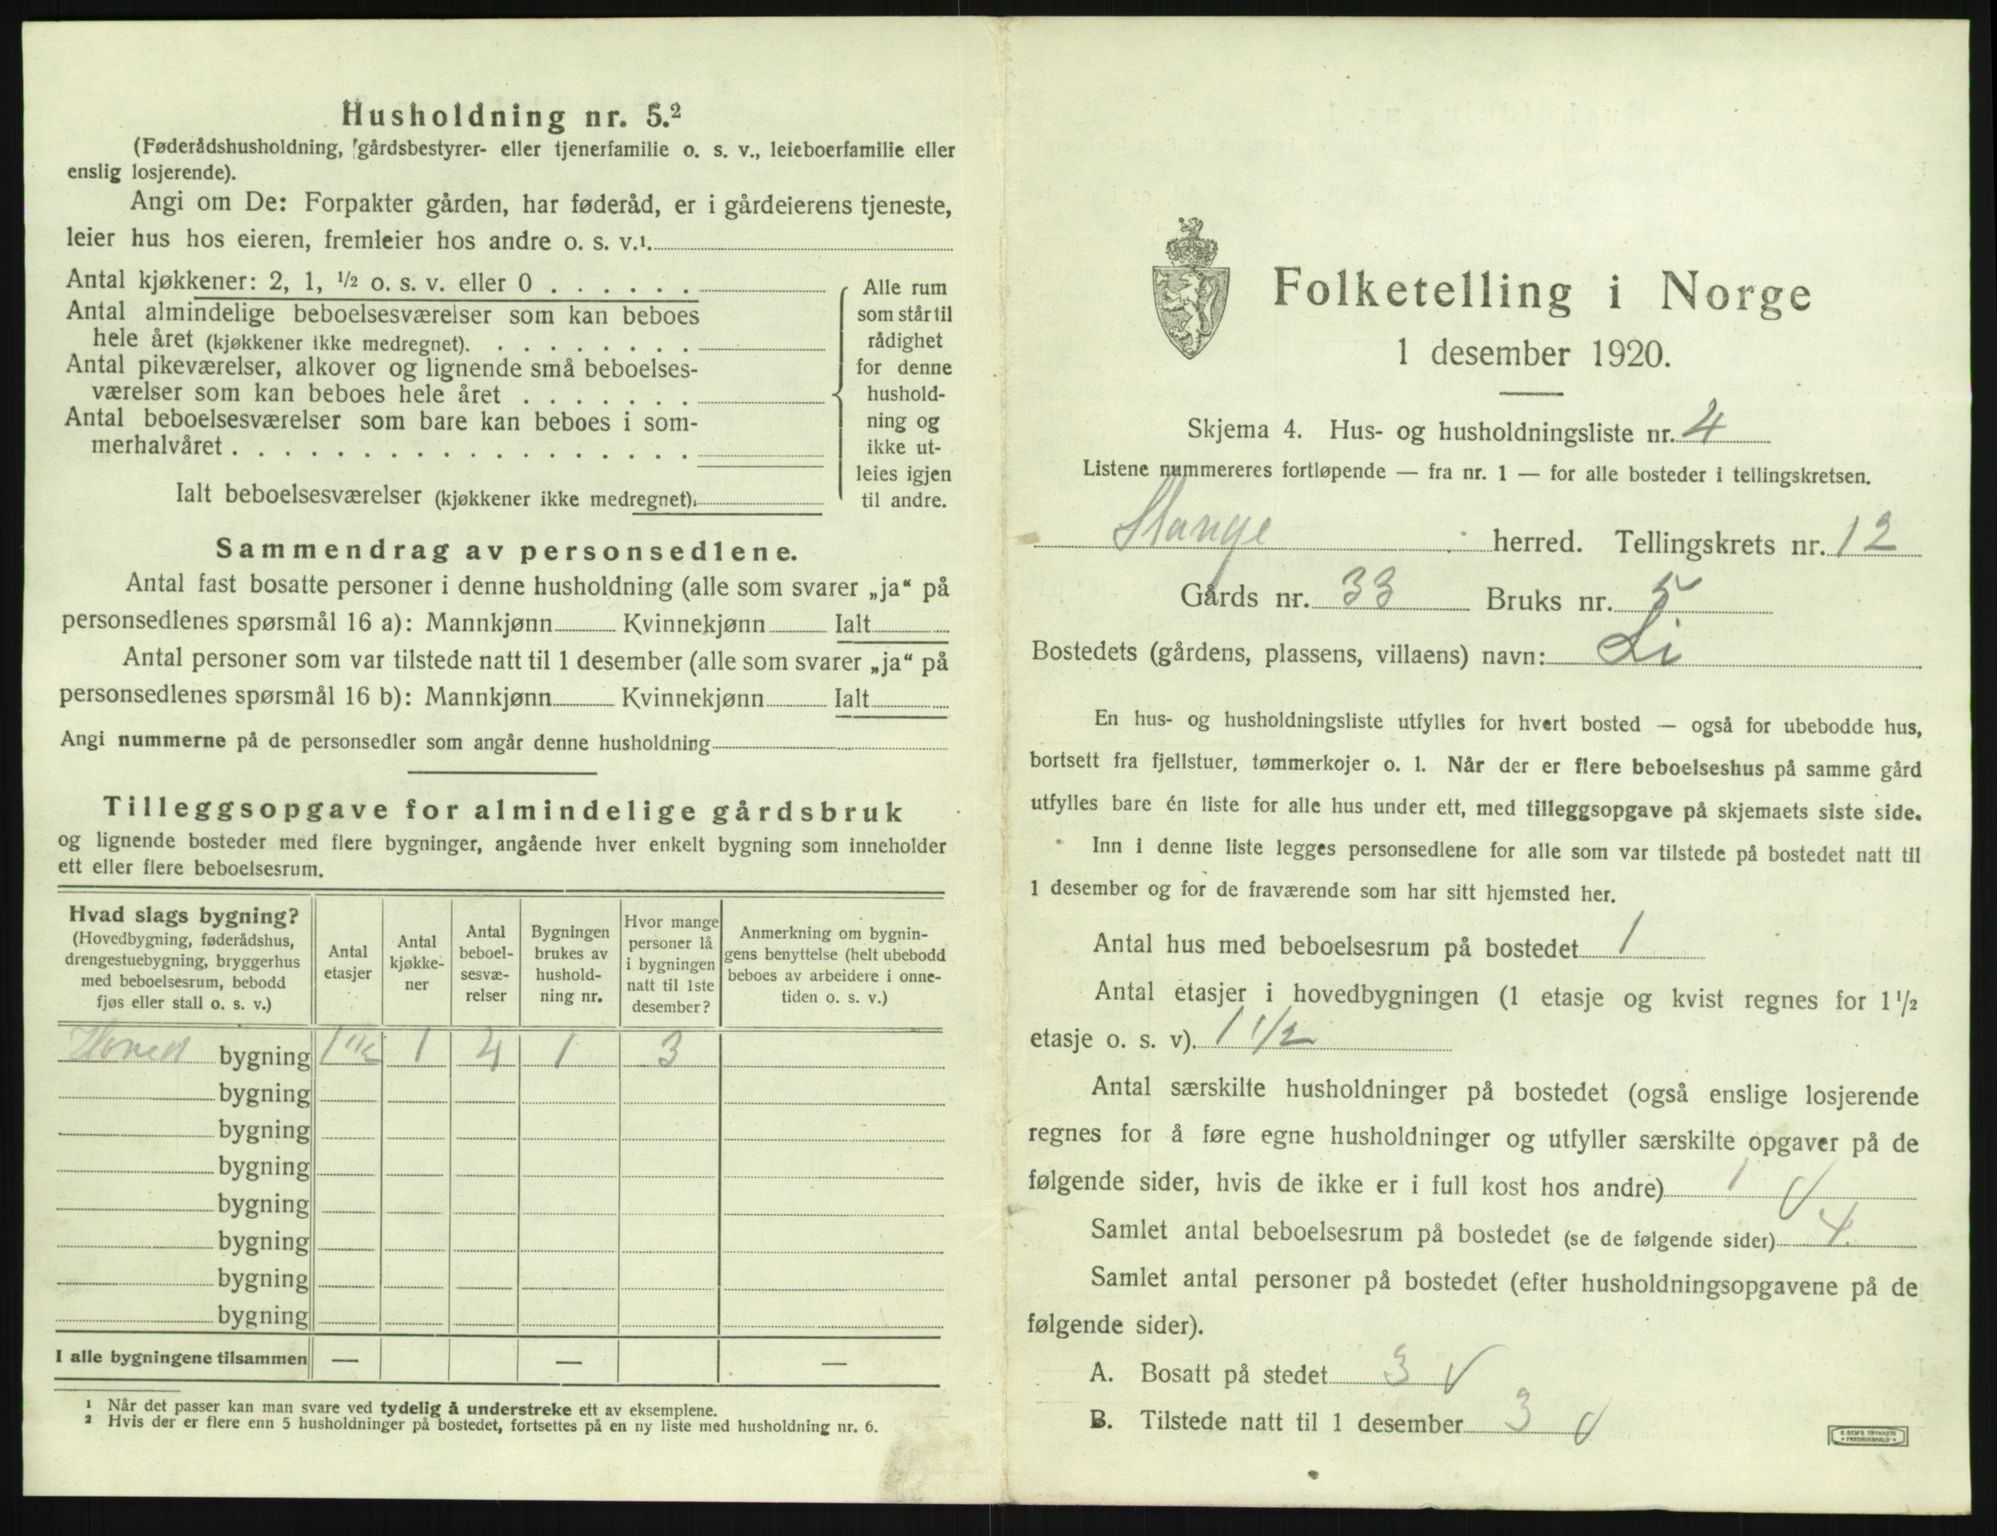 Husholdning nr. 5.²
(Føderådshusholdning, gårdsbestyrer- eller tjenerfamilie o. s. v., leieboerfamilie eller
enslig losjerende).
Angi om De: Forpakter gården, har føderåd, er i gårdeierens tjeneste,
leier hus hos eieren, fremleier hos andre o. s. v.¹
Antal kjøkkener: 2, 1, ½ o. s. v. eller 0 . . . . . .
Antal almindelige beboelsesværelser som kan beboes
hele året (kjøkkener ikke medregnet). . . . . . . . .
Antal pikeværelser, alkover og lignende små beboelses-
værelser som kan beboes hele året . . . . . . .
Antal beboelsesværelser som bare kan beboes i som-
merhalvåret . . . . . . . . . . . . . . . . . .
Ialt beboelsesværelser (kjøkkener ikke medregnet).
Alle rum
som står til
rådighet
for denne
hushold-
ning og
ikke ut-
leies igjen
til andre.
Sammendrag av personsedlene.
Antal fast bosatte personer i denne husholdning (alle som svarer „ja“ på
personsedlenes spørsmål 16 a): Mannkjønn Kvinnekjønn Ialt
Antal personer som var tilstede natt til 1 desember (alle som svarer „ja“ på
personsedlenes spørsmål 16 b): Mannkjønn Kvinnekjønn Ialt
Angi nummerne på de personsedler som angår denne husholdning
Tilleggsopgave for almindelige gårdsbruk
og lignende bosteder med flere bygninger, angående hver enkelt bygning som inneholder
ett eller flere beboelsesrum.
Hvad slags bygning?
(Hovedbygning, føderådshus,
drengestuebygning, bryggerhus
med beboelsesrum, bebodd
fjøs eller stall o. s. v.)
Antal
etasjer
Antal
kjøkke-
ner
Antal
beboel-
sesvæ-
relser
Bygningen
brukes av
hushold-
ning nr.
Hvor mange
personer lå
i bygningen
natt til 1ste
desember?
Anmerkning om bygnin-
gens benyttelse (helt ubebodd
beboes av arbeidere i onne-
tiden o. s. v.)
Hoved bygning 1 1/2 1 4 1 3
bygning
bygning
bygning
bygning
bygning
bygning
bygning
I alle bygningene tilsammen — — —
¹ Når det passer kan man svare ved tydelig å understreke ett av eksemplene.
² Hvis der er flere enn 5 husholdninger på bostedet, fortsettes på en ny liste med husholdning nr. 6.
Folketelling i Norge
1 desember 1920.
Skjema 4. Hus- og husholdningsliste nr. 4
Listene nummereres fortløpende — fra nr. 1 — for alle bosteder i tellingskretsen.
Stange herred. Tellingskrets nr. 12
Gårds nr. 33 Bruks nr. 5
Bostedets (gårdens, plassens, villaens) navn: Li
En hus- og husholdningsliste utfylles for hvert bosted — også for ubebodde hus,
bortsett fra fjellstuer, tømmerkojer o. l. Når der er flere beboelseshus på samme gård
utfylles bare én liste for alle hus under ett, med tilleggsopgave på skjemaets siste side.
Inn i denne liste legges personsedlene for alle som var tilstede på bostedet natt til
1 desember og for de fraværende som har sitt hjemsted her.
Antal hus med beboelsesrum på bostedet 1
Antal etasjer i hovedbygningen (1 etasje og kvist regnes for 1½
etasje o. s. v). 1 1/2
Antal særskilte husholdninger på bostedet (også enslige losjerende
regnes for å føre egne husholdninger og utfyller særskilte opgaver på de
følgende sider, hvis de ikke er i full kost hos andre) 1 √
Samlet antal beboelsesrum på bostedet (se de følgende sider) 4
Samlet antal personer på bostedet (efter husholdningsopgavene på de
følgende sider).
A. Bosatt på stedet 3 √
B. Tilstede natt til 1 desember 3 √
E. SEM'S TRYKKERI
FREDRIKSHALD